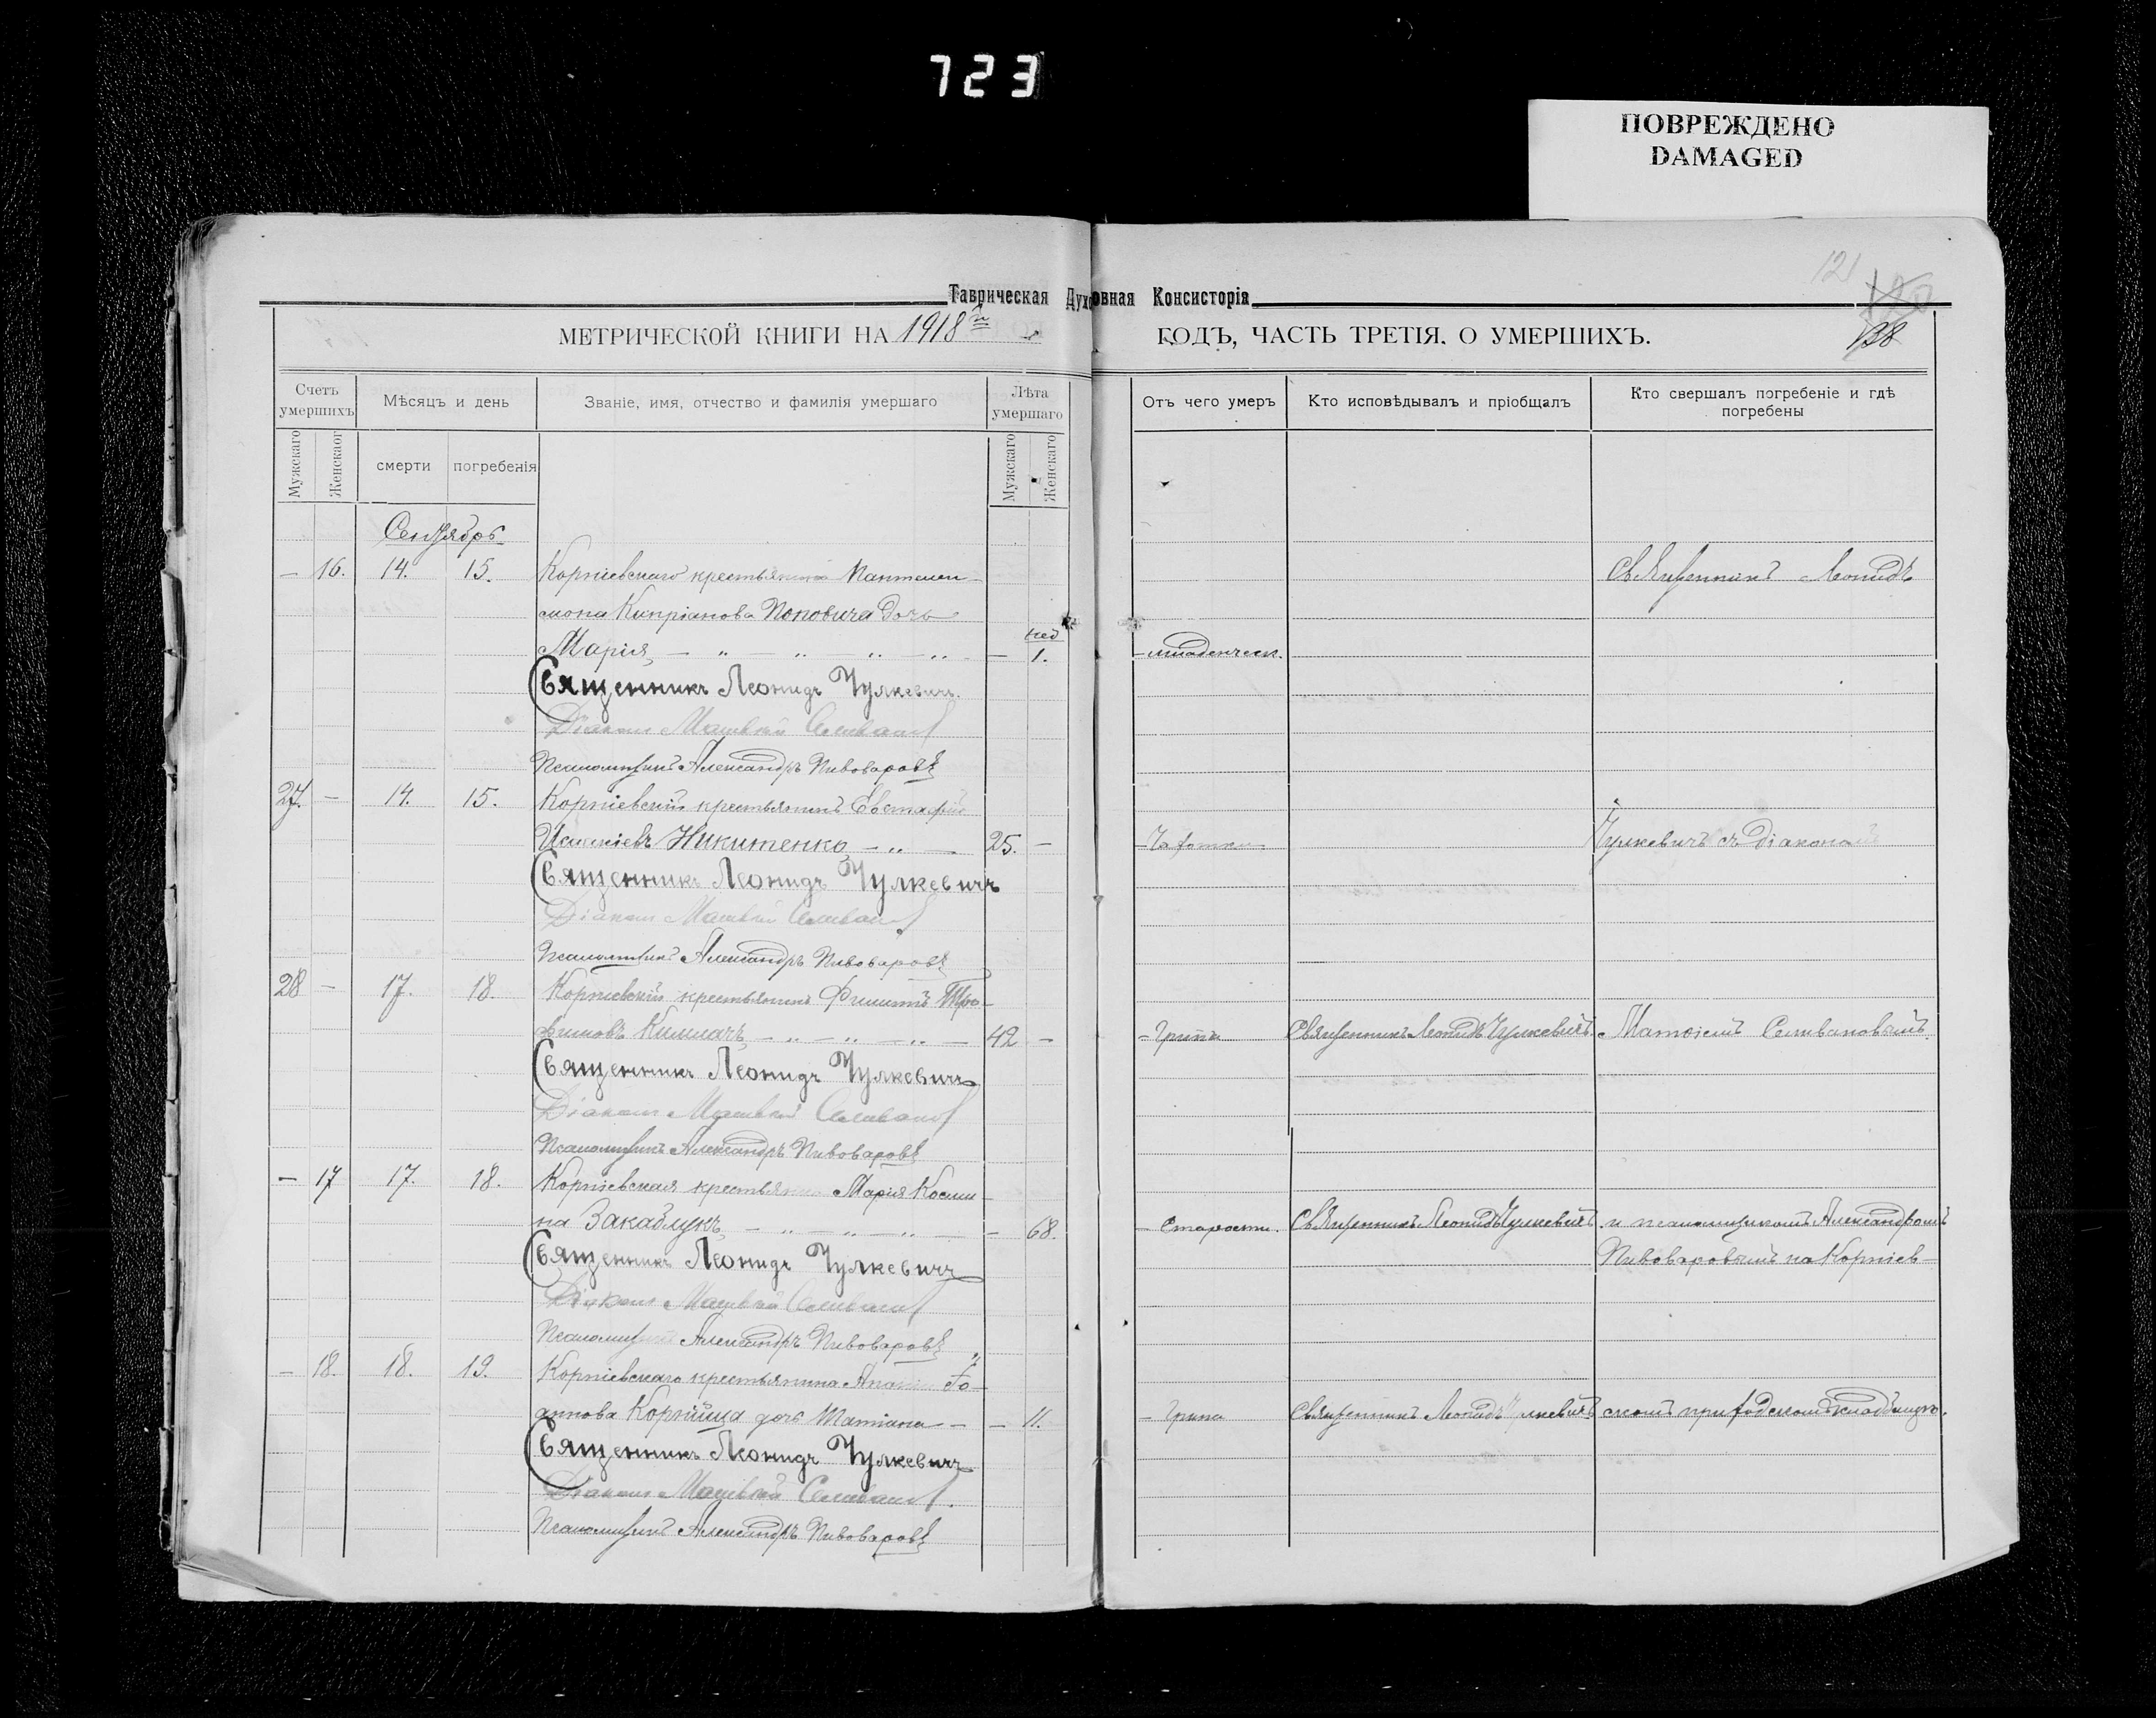 723
ПОВРЕЖДЕНО
DAMAGED
121
Таврическая Духовная Консисторія
МЕТРИЧЕСКОЙ КНИГИ НА 1918й ГОДЪ, ЧАСТЬ ТРЕТІЯ, О УМЕРШИХЪ.
Счетъ умершихъ
Мѣсяцъ и день
Званіе, имя, отчество и фамилія умершаго
Лѣта умершаго
Отъ чего умеръ
Кто исповѣдывалъ и пріобщалъ
Кто свершалъ погребеніе и гдѣ погребены
Мужскаго
Женскаог
смерти
погребенія
Мужскаго
Женскаго
Сентябрь
– 16. 14. 15. Корніевскаго крестьянина Пантелеи- Священникъ Леонидъ
мона Кипріанова Поповича дочь
нед
Марія – „ – „ – „ – „ – – 1. – младенческ.
Священникъ Леонидъ Чулкевичъ.
Діаконъ Матѳей Селивановъ
Псаломщикъ Александръ Пивоваровъ
27. – 14. 15. Корніевскій крестьянинъ Евстафій
Никитенко – „ – 25. – – Чахотки Чулкевичъ съ діакономъ
Священникъ Леонидъ Чулкевичъ
Діаконъ Матѳей Селивановъ
Псаломщикъ Александръ Пивоваровъ
28 – 17. 18. Корніевскій крестьянинъ Филиппъ Тро-
фимовъ – „ – „ – „ – 42 – – Гриппа Священникъ Леонидъ Чулкевичъ Матѳеемъ Селивановымъ
Священникъ Леонидъ Чулкевичъ
Діаконъ Матѳей Селивановъ
Псаломщикъ Александръ Пивоваровъ
– 17 17. 18. Корніевская крестьянка Марія Косми-
на Закаблукъ – „ – „ – „ – – 68. – Старости. Священникъ Леонидъ Чулкевичъ и псаломщикомъ Александромъ
Священникъ Леонидъ Чулкевичъ Пивоваровымъ на Корніев-
Діаконъ Матѳей Селивановъ
Псаломщикъ Александръ Пивоваровъ
– 18. 18. 19. Корніевскаго крестьянина Іо-
аннова Корнійца дочь Татіана – – 11. – Грипа Священникъ Леонидъ Чулкевичъ скомъ приходскомъ кладбищѣ.
Священникъ Леонидъ Чулкевичъ
Діаконъ Матѳей Селивановъ.
Псаломщикъ Александръ Пивоваровъ